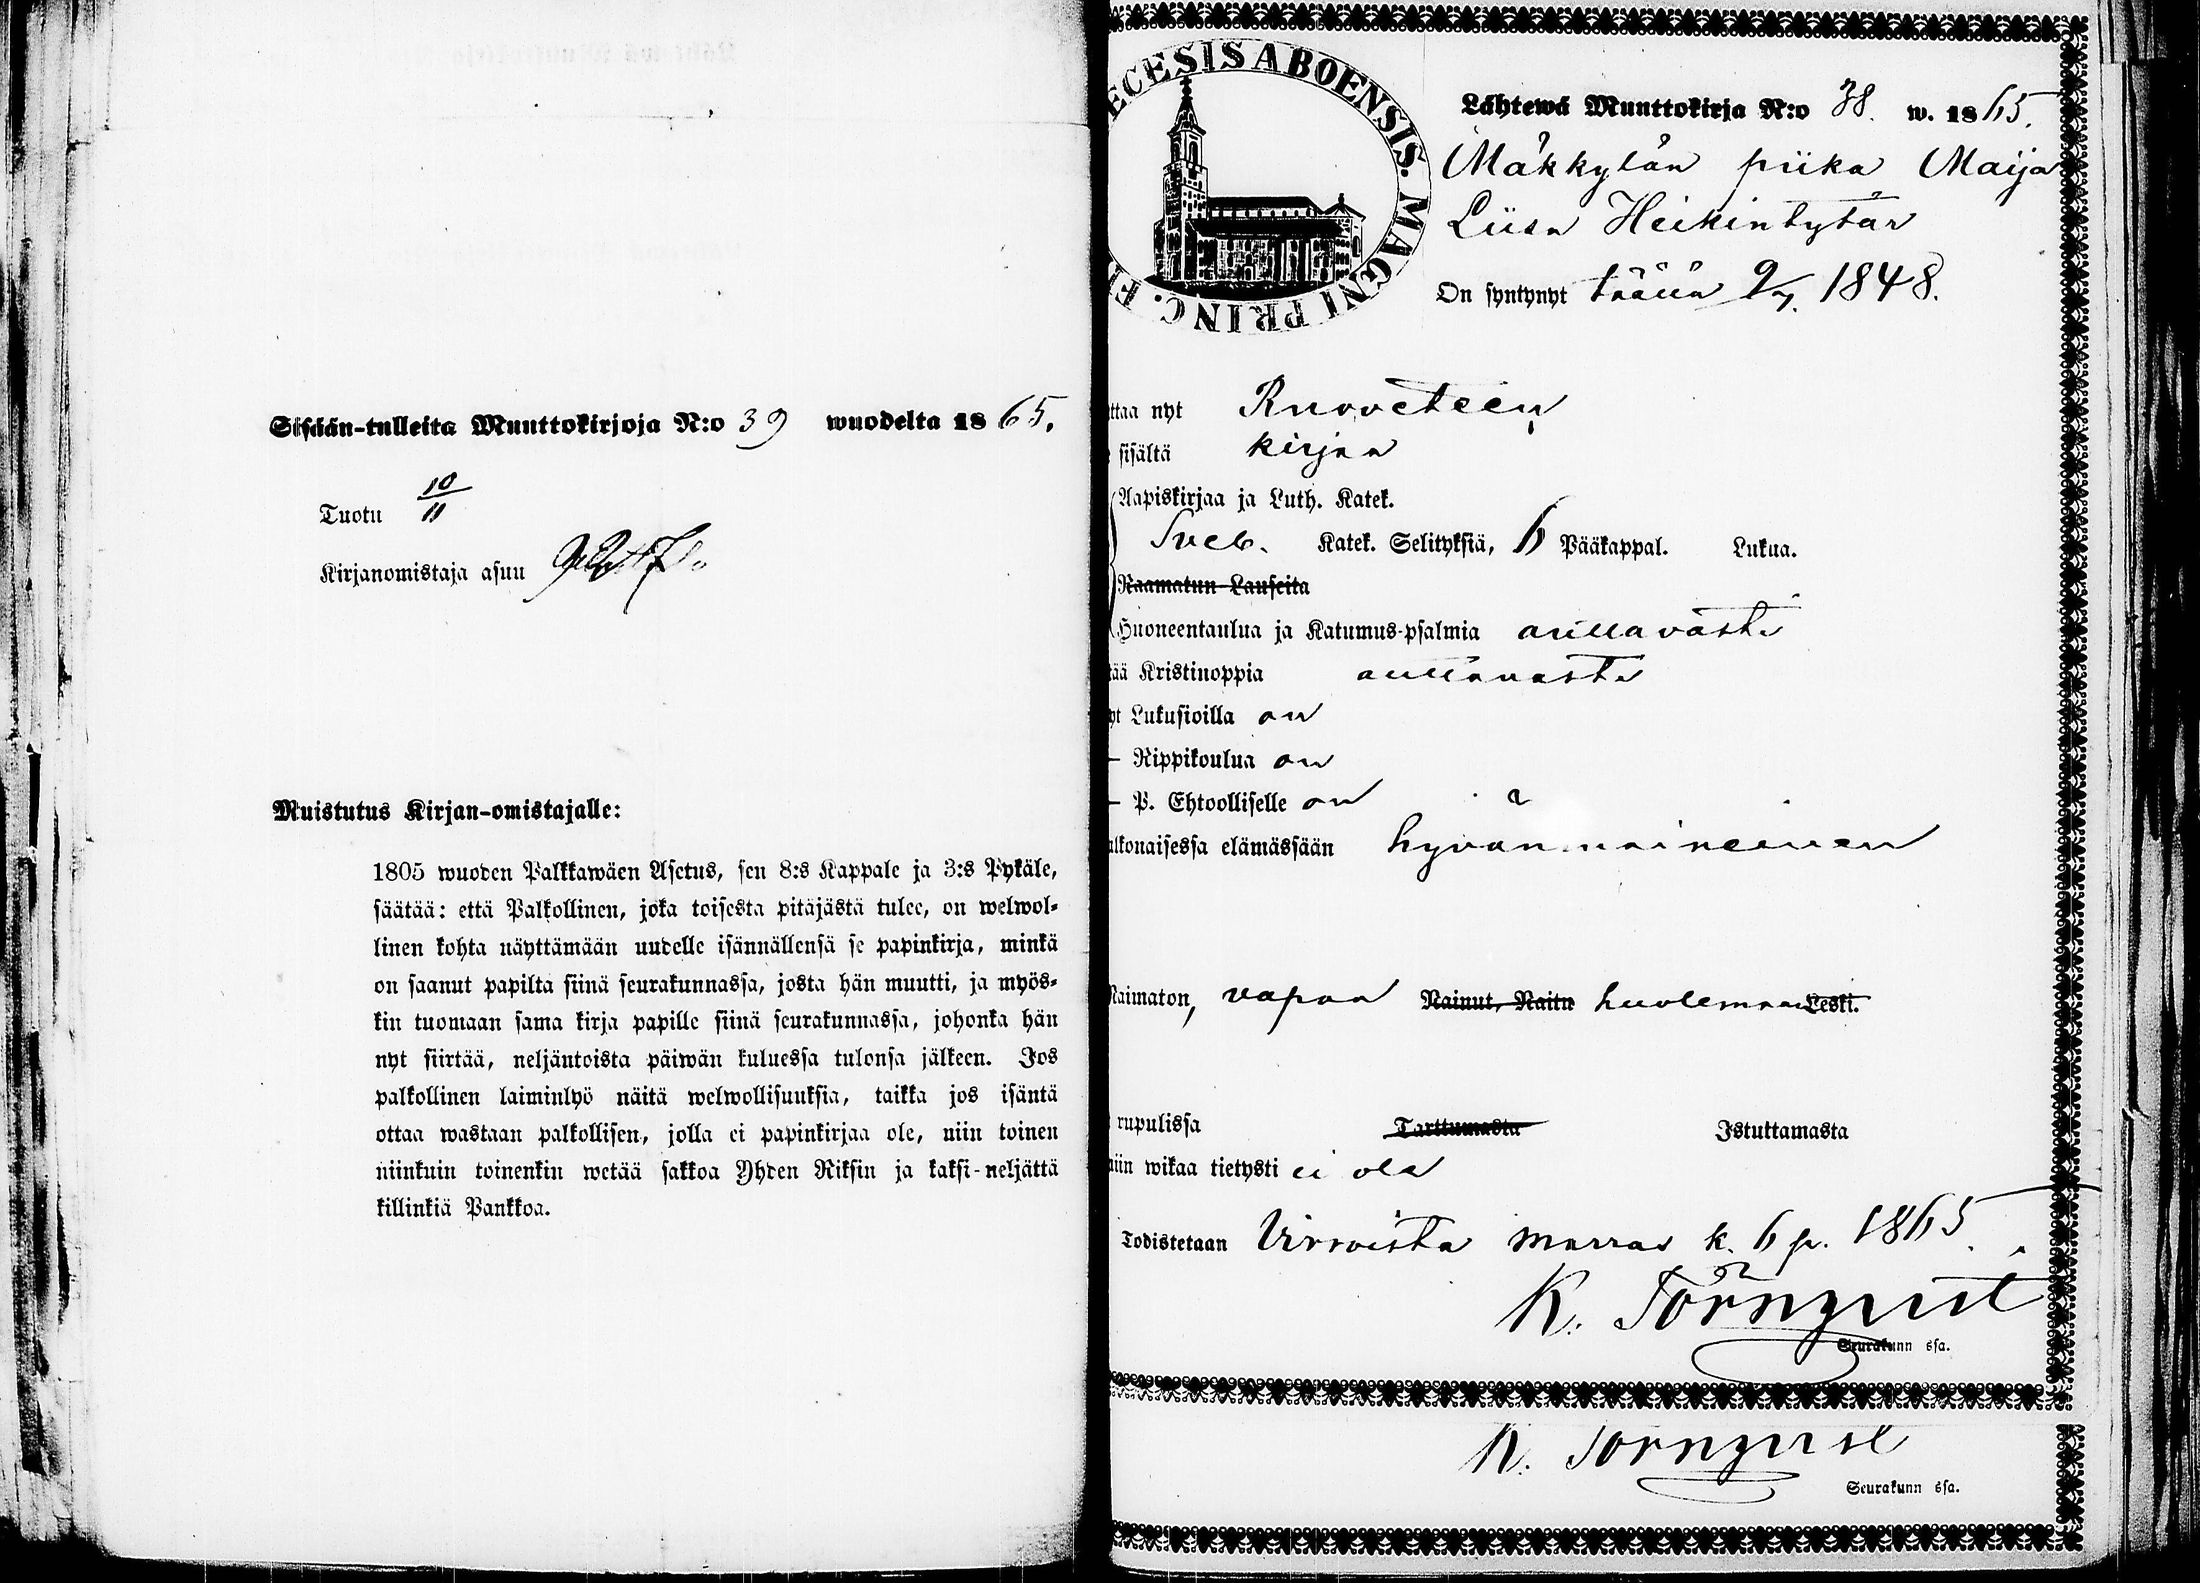 Sisään-tulleita Muuttokirjoja N:o 39 wuodelta 1865.
Tuotu 10/11
Kirjanomistaja asuu
Muistutus Kirjan-omistajalle:
1805 wuoden Palkkawäen Asetus, sen 8:s Kappale ja 3:s Pykäle,
säätää: että Palkollinen, joka toisesta pitäjästä tulee, on welwol-
linen kohta näyttämään uudelle isännällensä se papinkirja, minkä
on saanut papilta siinä seurakunnassa, josta hän muutti, ja myös-
kin tuomaan sama kirja papille siinä seurakunnassa, johonka hän
nyt siirtää, neljäntoista päiwän kuluessa tulonsa jälkeen. Jos
palkollinen laiminlyö näitä welwollisuuksia, taikka jos isäntä
ottaa wastaan palkollisen, jolla ei papinkirjaa ole, niin toinen
niinkuin toinenkin wetää sakkoa Yhden Riksin ja kaksi-neljättä
killinkiä Pankkoa.
ECESIS ABOENSIS. MAGNI PRINC. F
Lähtewä Muuttokirja N:o 38. w. 1865.
Mäkkylän piika Maija
Liisa Heikintytär
On syntynyt täällä 9/7. 1848.
ttaa nyt Ruoveteen
sisältä kirjaa
Aapiskirjaa ja Luth. Katek.
Sveb. Katek. Selityksiä, 6 Pääkappal. Lukua.
Raamatun Lauseita
Huoneentaulua ja Katumus-psalmia auttavasti
tää Kristinoppia auttavasti
yt Lukusioilla on
— Rippikoulua on
— P. Ehtoolliselle on
alkonaisessa elämässään hyvänmaineinen
Naimaton, vapaa Nainut, Naitu huolemaan Leski.
rupulissa Tarttumasta Istuttamasta
niin wikaa tietysti ei ole
Todistetaan Virroista marras k. 6 p. 1865.
K. Törnqvist
Seurakunn ssa.
K. Törnqvist
Seurakunn ssa.